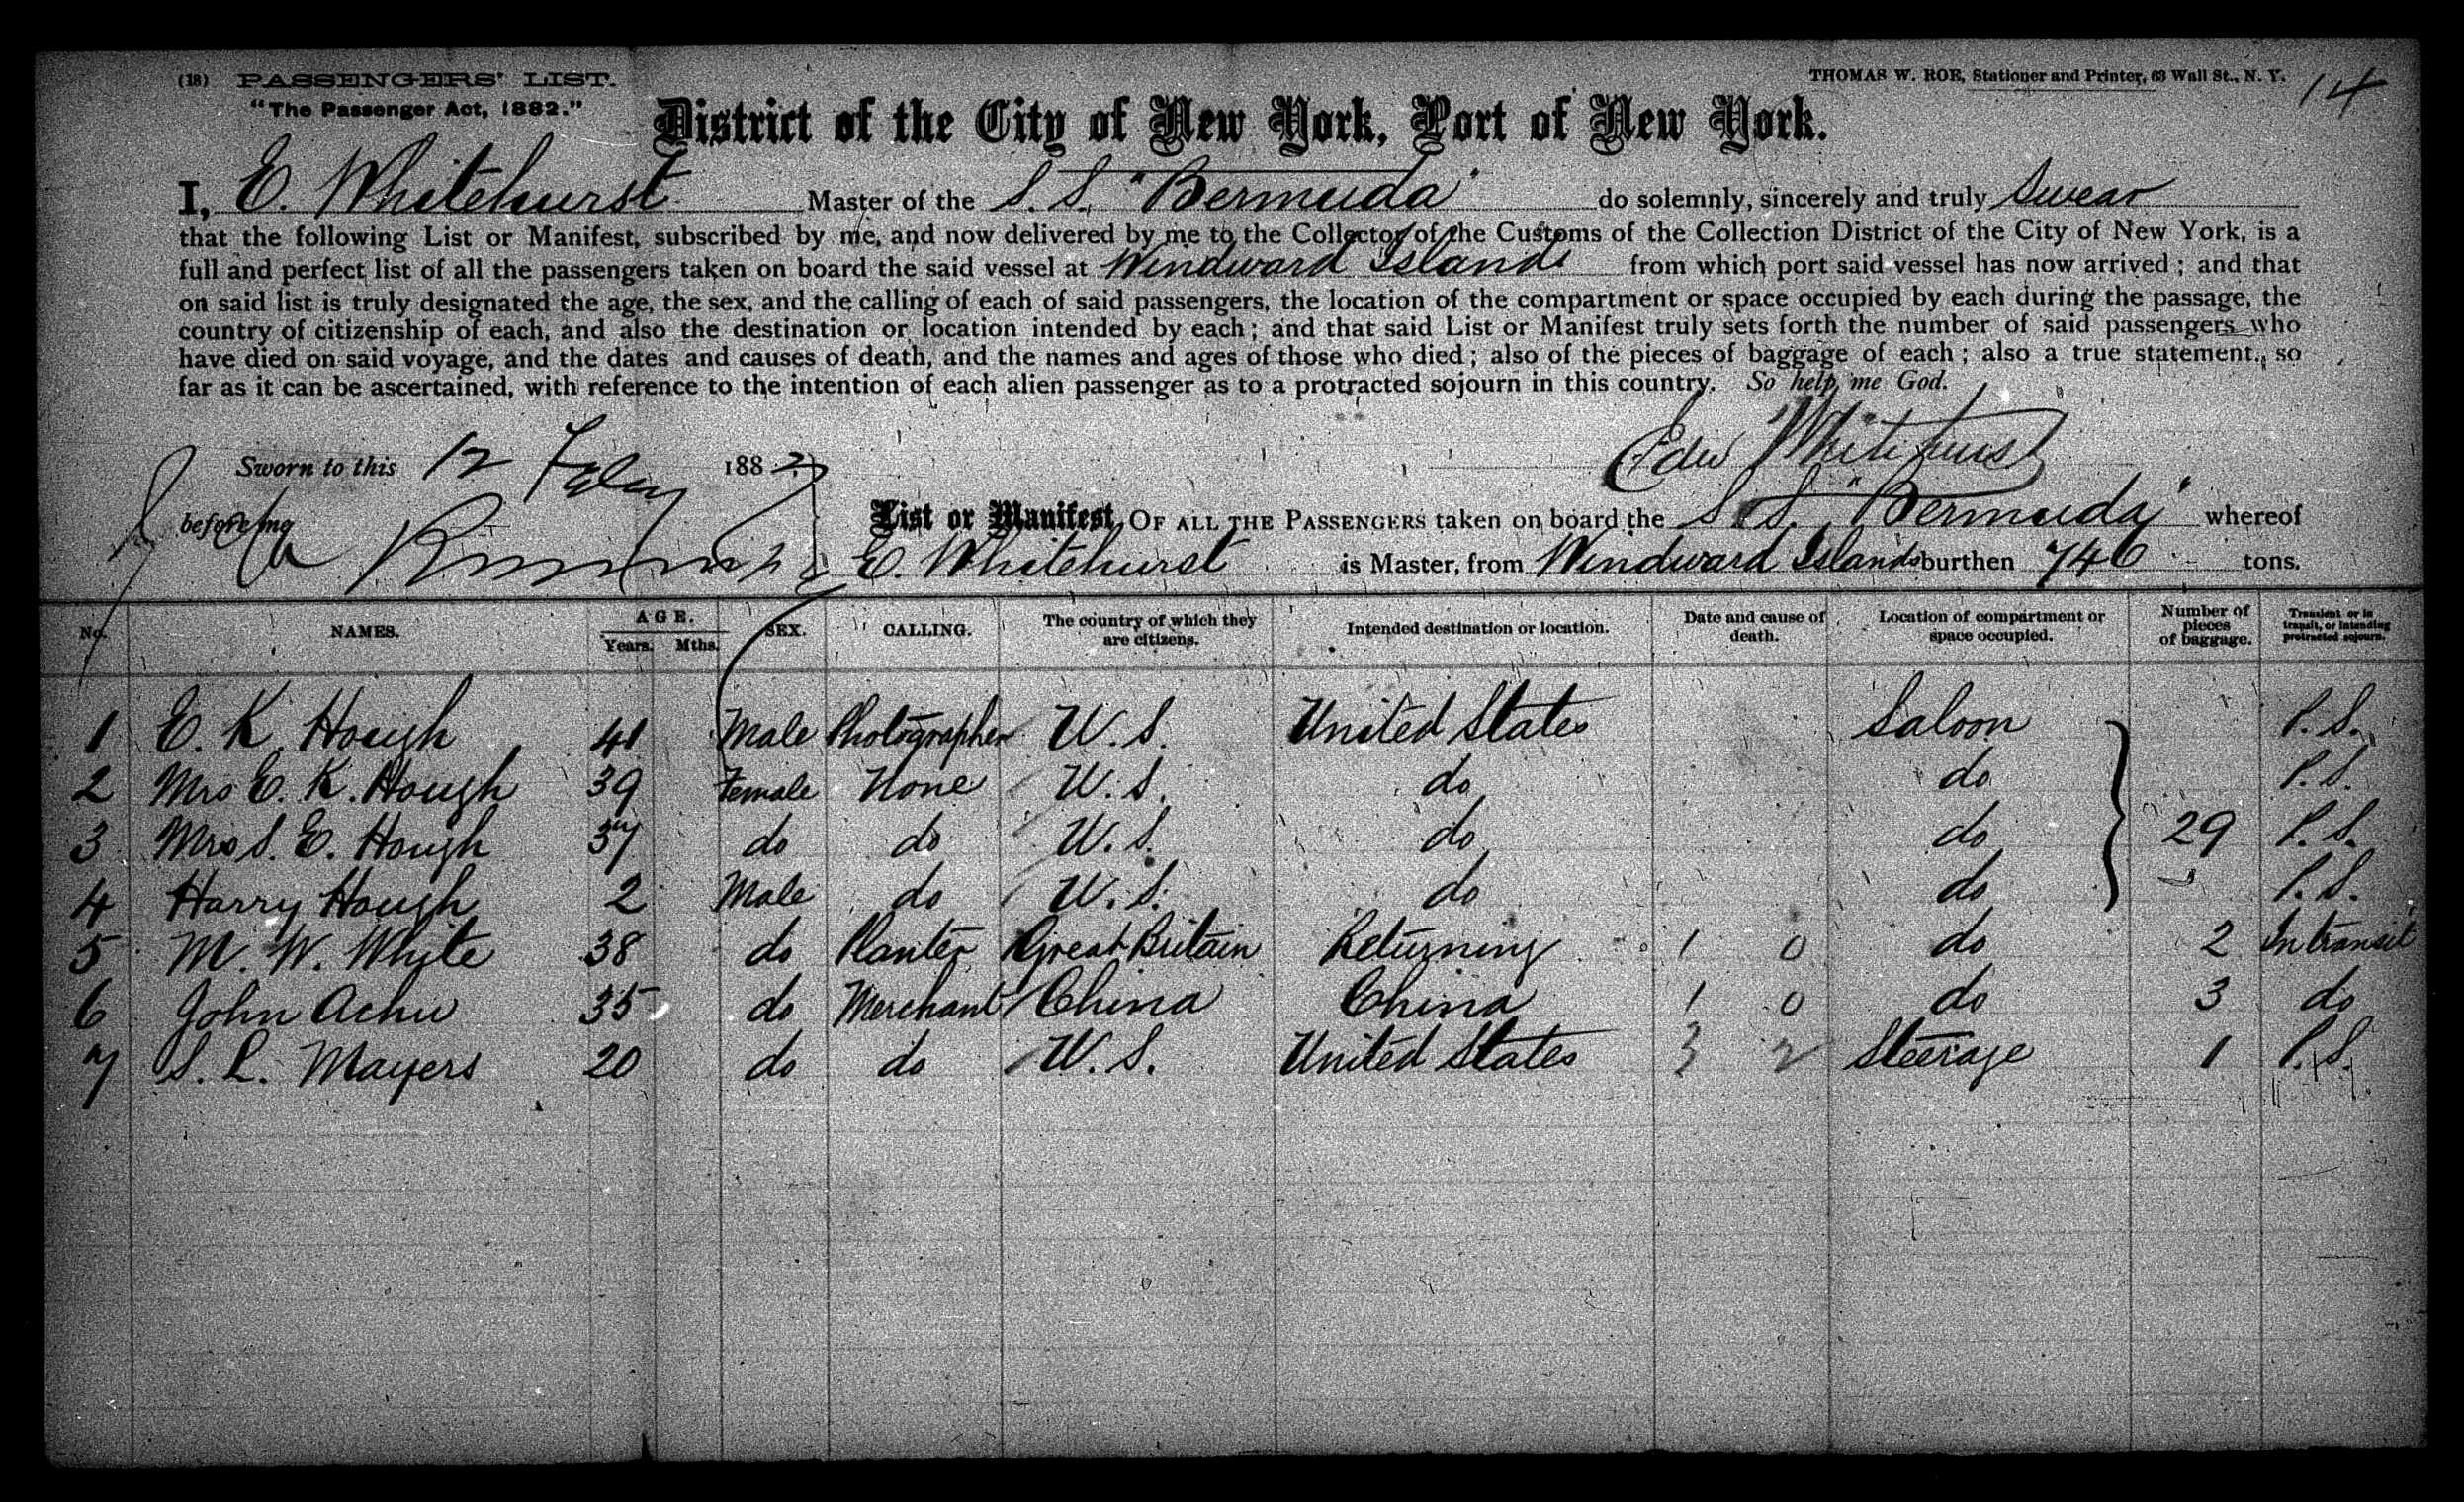 (18) PASSENGERS' LIST.
THOMAS W. ROE, Stationer and Printer, 63 Wall St., N. Y.
14
"The Passenger Act, 1882."
District of the City of New York, Port of New York.
I, E. Whitehurst Master of the S. S. "Bermuda" do solemnly, sincerely and truly swear
that the following List or Manifest, subscribed by me, and now delivered by me to the Collector of the Customs of the Collection District of the City of New York, is a
full and perfect list of all the passengers taken on board the said vessel at Windward Islands from which port said vessel has now arrived; and that
on said list is truly designated the age, the sex, and the calling of each of said passengers, the location of the compartment or space occupied by each during the passage, the
country of citizenship of each, and also the destination or location intended by each; and that said List or Manifest truly sets forth the number of said passengers who
have died on said voyage, and the dates and causes of death, and the names and ages of those who died; also of the pieces of baggage of each; also a true statement, so
far as it can be ascertained, with reference to the intention of each alien passenger as to a protracted sojourn in this country. So help me God.
Edw Whitehurst
Sworn to this 12 Feby 188
before me
List or Manifest, OF ALL THE PASSENGERS taken on board the S. S. "Bermuda" whereof
E. Whitehurst is Master, from Windward Islands burthen 746 tons.
No. NAMES. AGE. Years. Mths. SEX. CALLING. The country of which they are citizens. Intended destination or location. Date and cause of death. Location of compartment or space occupied. Number of pieces of baggage. Transient or in transit, or intending protracted sojourn.
1 E. K. Hough 41 Male Photographer U. S. United States Saloon P. S.
2 Mrs E. K. Hough 39 Female None U. S. do do P. S.
3 Mrs S. E. Hough 37 do do U. S. do do 29 P. S.
4 Harry Hough 2 Male do U. S. do do P. S.
5 M. W. White 38 do Planter Great Britain Returning 1 0 do 2 In transit
6 John Achu 35 do Merchant China China 1 0 do 3 do
7 S. L. Mayers 20 do do U. S. United States 3 2 Steerage 1 P. S.